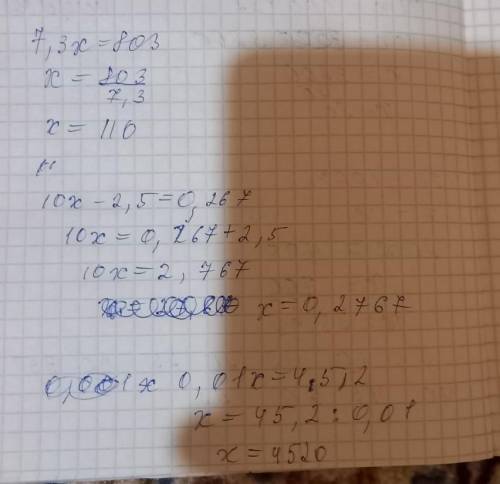 7,3x=803
x = 803/7,3
x = 110
10x - 2,5=0,267
10x = 0,267+2,5
10x = 2,767
x = 0,2767
0,01x = 45,2
x = 45,2 : 0,01
x = 4520